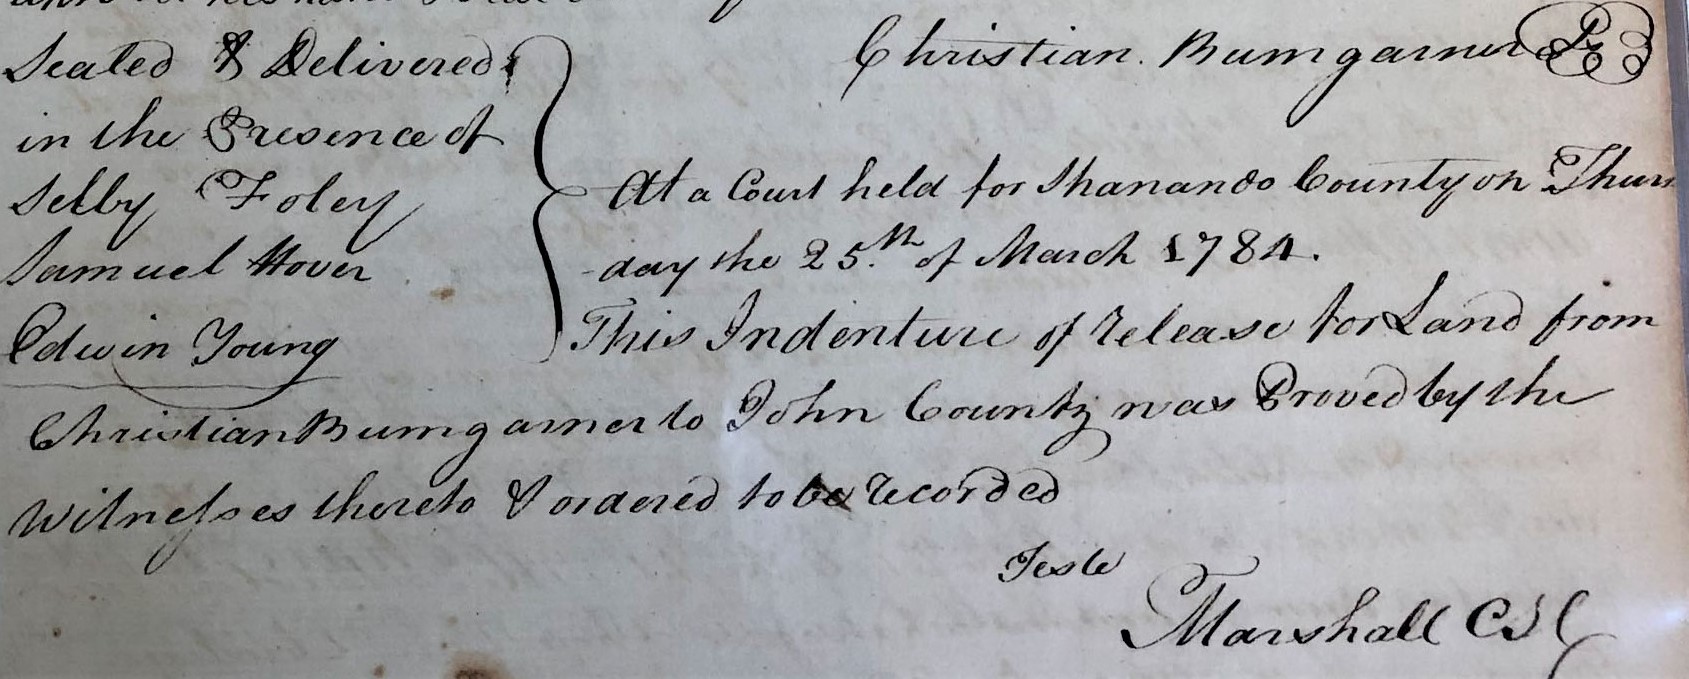 Sealed & Delivered
in the Presence of
Selby Foley
Samuel Hover
Edwin Young
Christian. Bumgarner
At a Court held for Shanando County on Thurs
-day the 25.th of March 1784.
This Indenture of release for Land from
Christian Bumgarner to John Countz was Proved by the
Witnesses thereto & ordered to be recorded
Teste
Marshall CSC